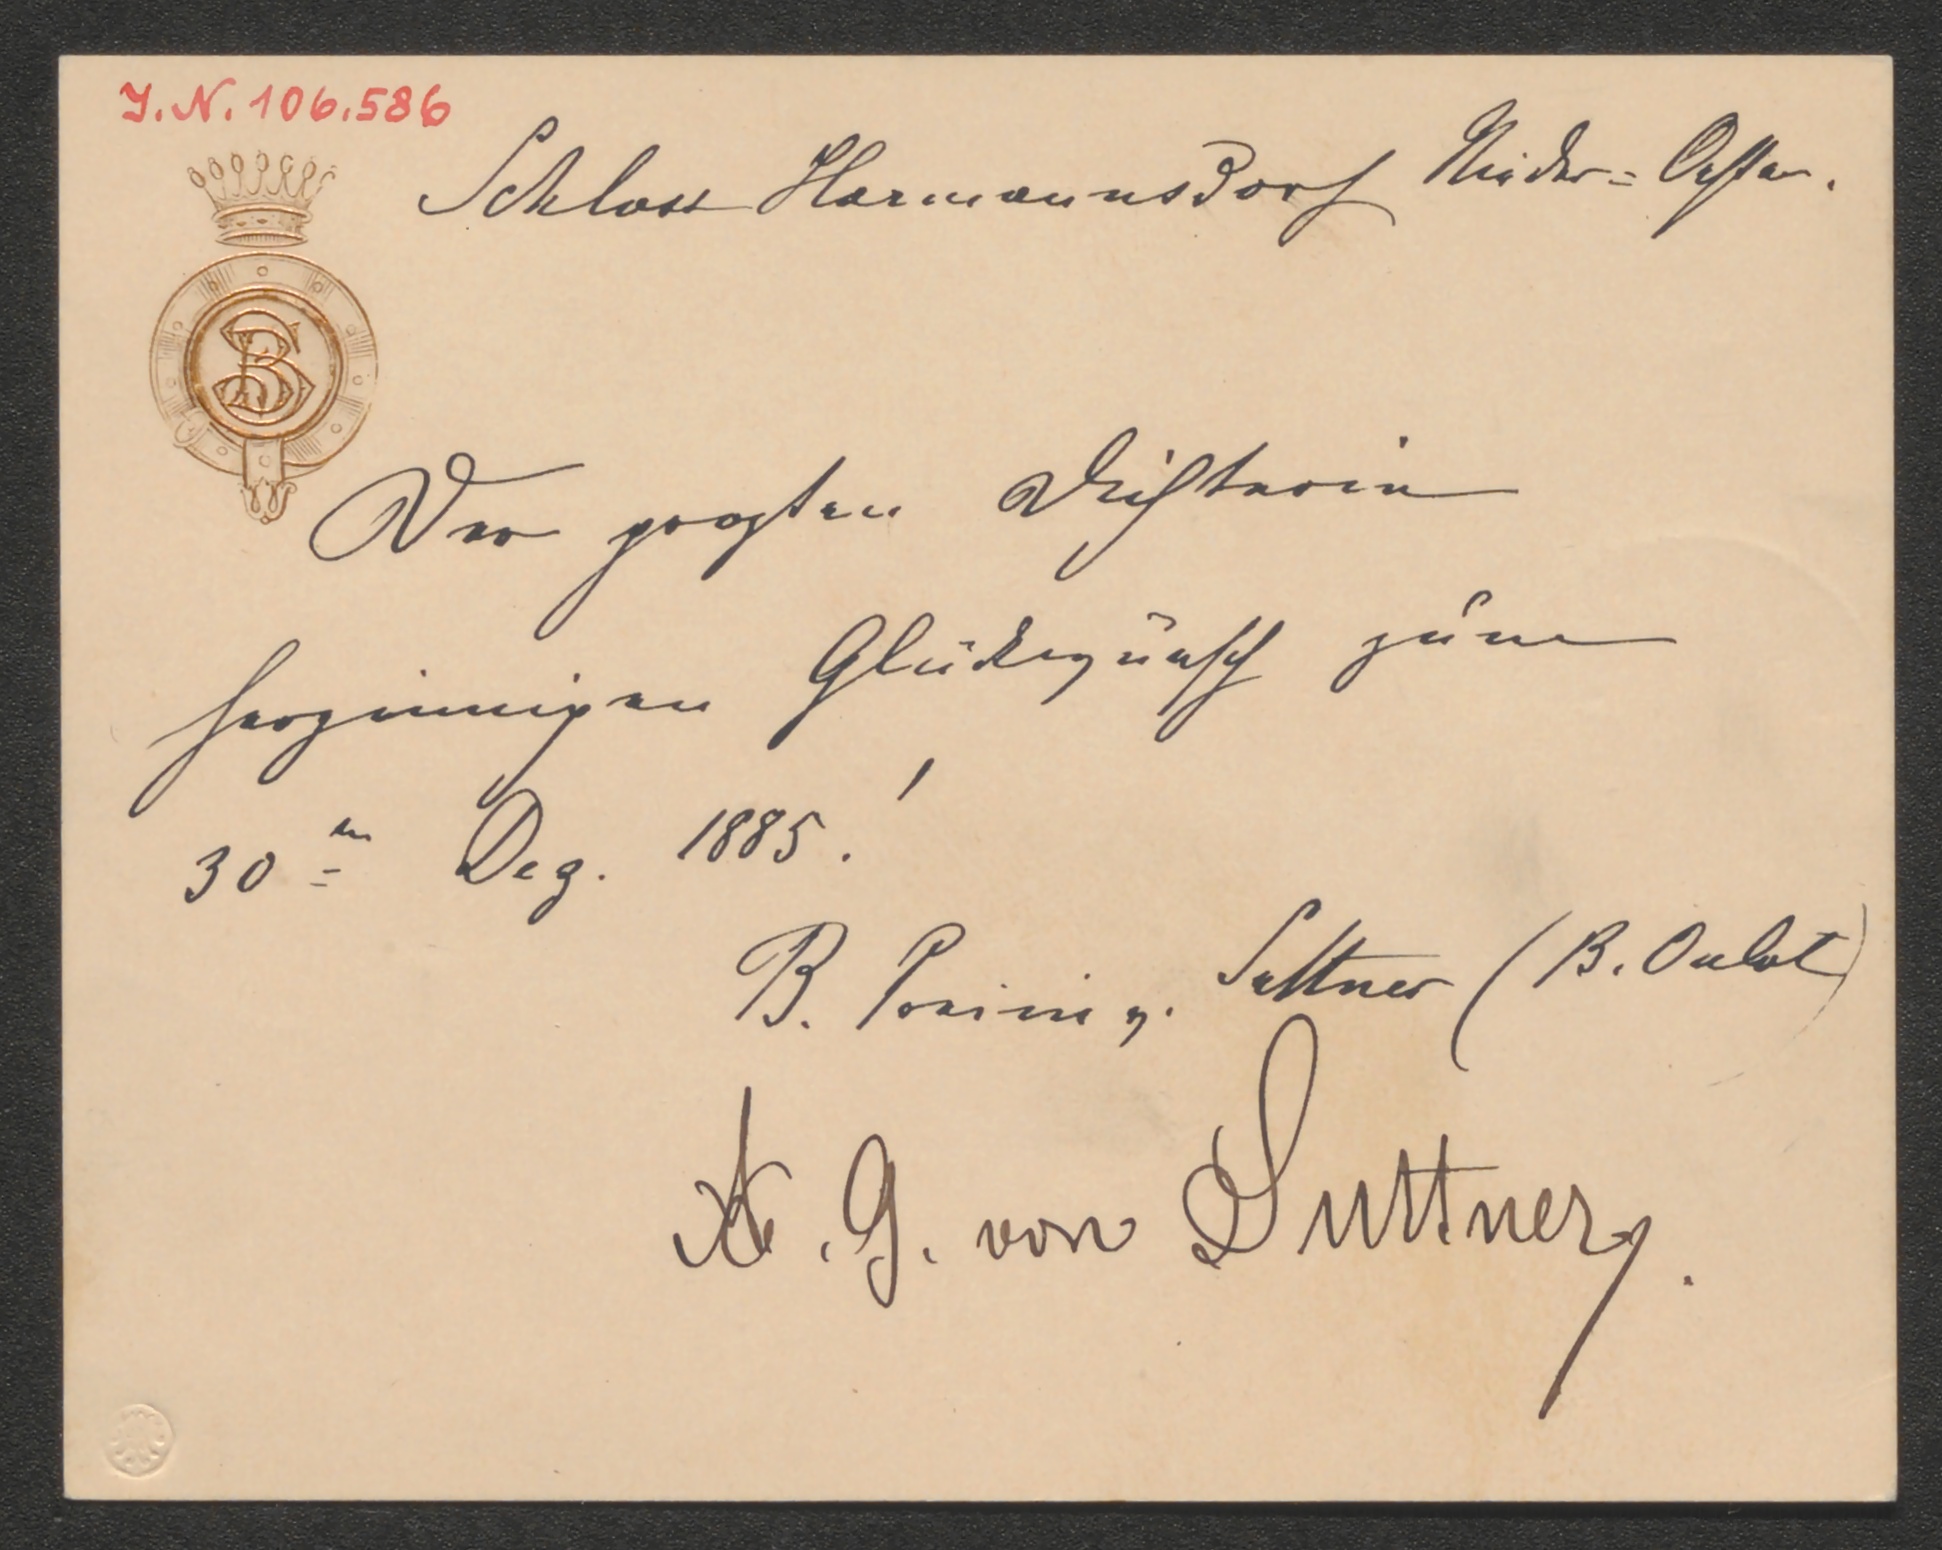 J.N. 106.586
Schloss Harmannsdorf Nieder=Oester.
BS
Der großen Dichterin
herzinnigen Glückwunsch zum
30ten Dez. 1885!
B. Baronin v. Suttner (B. Oulot)
A. G. von Suttner.